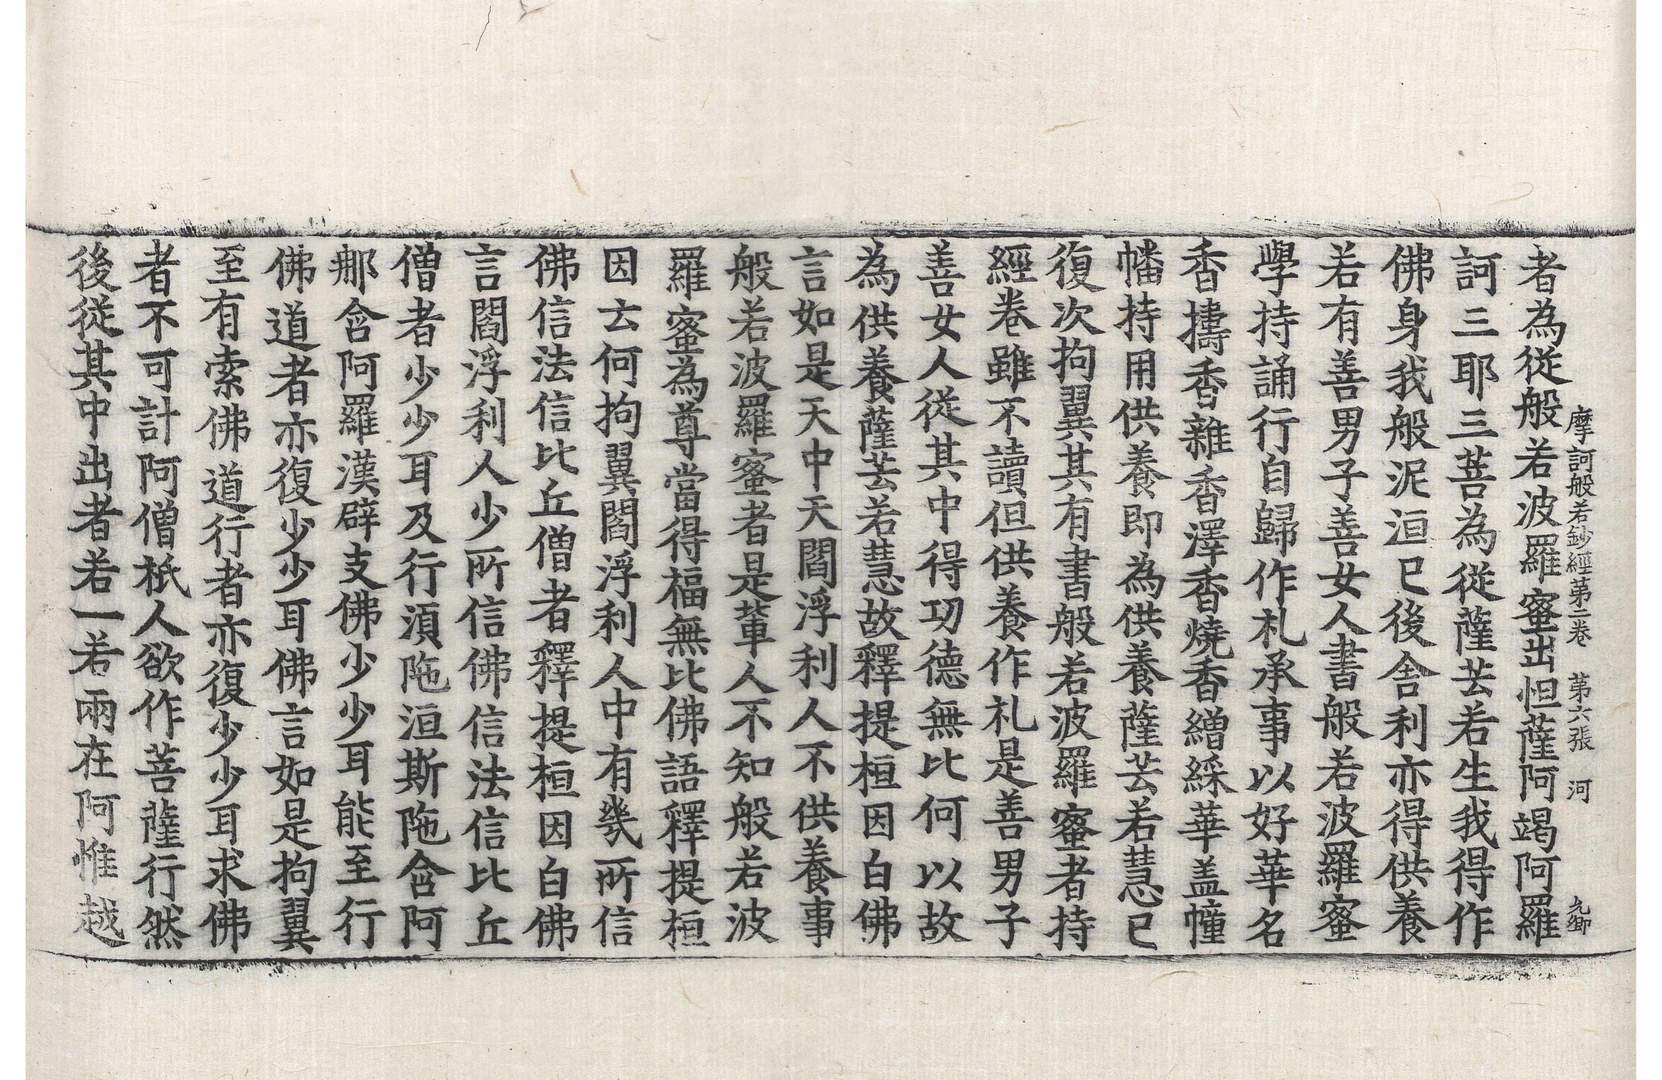 摩訶般若鈔經第二卷　第六張　河
者為從般若波羅蜜出怛薩阿竭阿羅
訶三耶三菩為從薩芸若生我得作
佛身我般泥洹已後舍利亦得供養
若有善男子善女人書般若波羅蜜
學持誦行自歸作礼承事以好華名
香擣香雜香香澤香燒香繒綵華盖幢
幡持用供養即為供養薩芸若慧已
復次拘翼其有書般若波羅蜜者持
經卷雖不讀但供養作礼是善男子
善女人從其中得功德無比何以故
為供養薩芸若慧故釋提桓因白佛
言如是天中天閻浮利人不供養事
般若波羅蜜者是輩人不知般若波
羅蜜為尊當得福無比佛語釋提桓
因云何拘翼閻浮利人中有幾所信
佛信法信比丘僧者釋提桓因白佛
言閻浮利人少所信佛信法信比丘
僧者少少耳及行湏陁洹斯陁含阿
那含阿羅漢辟支佛少少耳能至行
佛道者亦復少少耳佛言如是拘翼
至有索佛道行者亦復少少耳求佛
者不可計阿僧祇人欲作菩薩行然
後從其中出者若一若兩在阿惟越